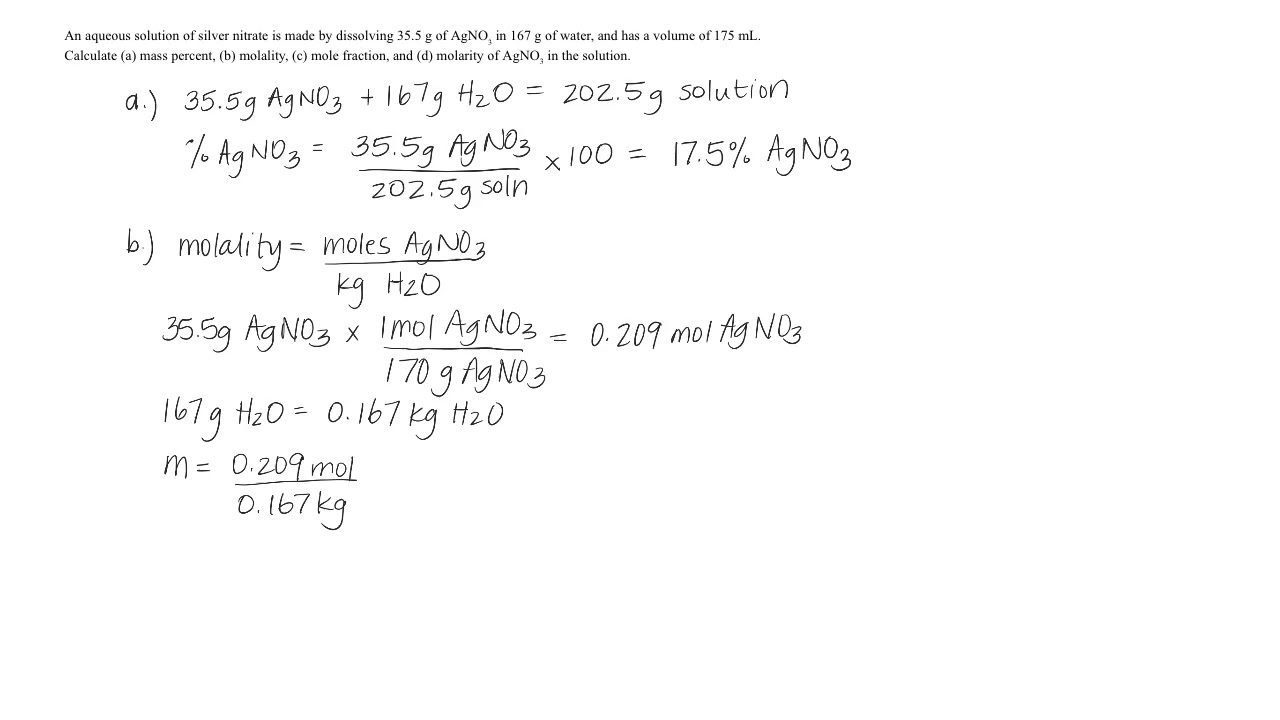 An aqueous solution of silver nitrate is made by dissolving 35.5 g of AgNO₃ in 167 g of water, and has a volume of 175 mL.
Calculate (a) mass percent, (b) molality, (c) mole fraction, and (d) molarity of AgNO₃ in the solution.
a.) 35.5g AgNO₃ + 167g H₂O = 202.5g solution
% AgNO₃ = 35.5g AgNO₃ / 202.5g soln × 100 = 17.5% AgNO₃
b.) molality = moles AgNO₃ / kg H₂O
35.5g AgNO₃ × 1mol AgNO₃ / 170 g AgNO₃ = 0.209 mol AgNO₃
167g H₂O = 0.167 kg H₂O
m = 0.209 mol / 0.167 kg